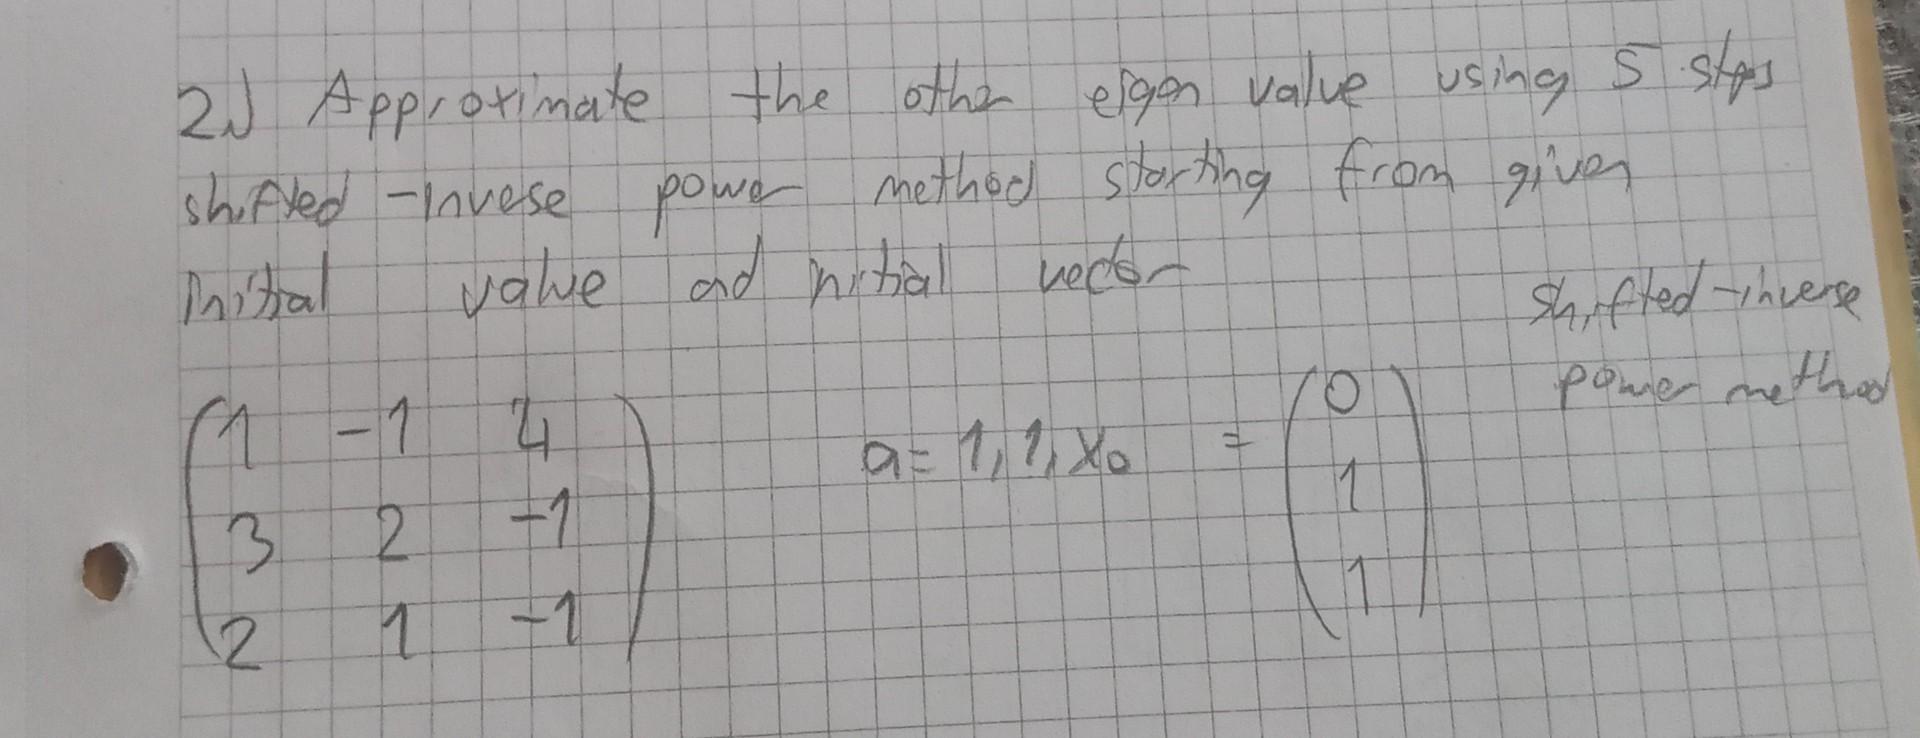 2) Approximate the other eigen value using 5 steps
shifted-inverse power method starting from given
initial value and initial vector
shifted-inverse
power method
1 -1 4
3 2 -1
2 1 -1
a = 1,1, x₀ =
0
1
1